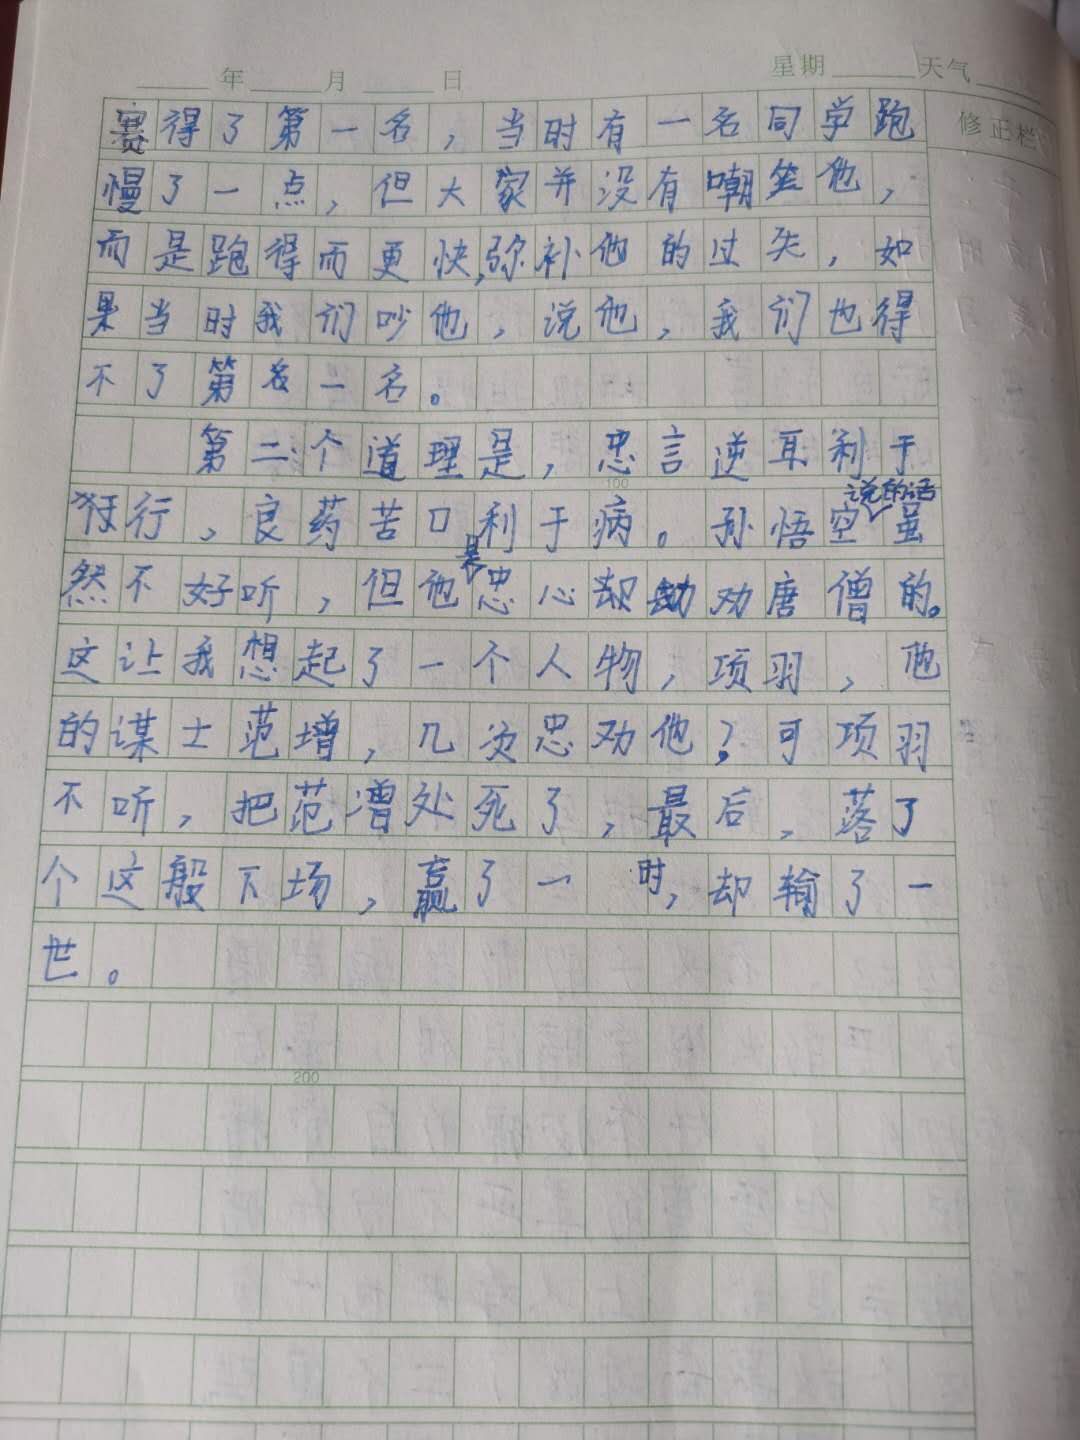 年 月 日 星期 天气
修正栏
赛得了第一名，当时有一名同学跑
慢了一点，但大家并没有嘲笑他，
而是跑得而更快，弥补他的过失，如
果当时我们吵他，说他，我们也得
不了第名一名。
第二个道理是，忠言逆耳利于
100
行，良药苦口利于病。孙悟空说的话虽
然不好听，但他是忠心却劝唐僧的。
这让我想起了一个人物，项羽，他
的谋士范增，几次忠劝他，可项羽
不听，把范增处死了，最后，落了
个这般下场，赢了一时，却输了一
世。
200